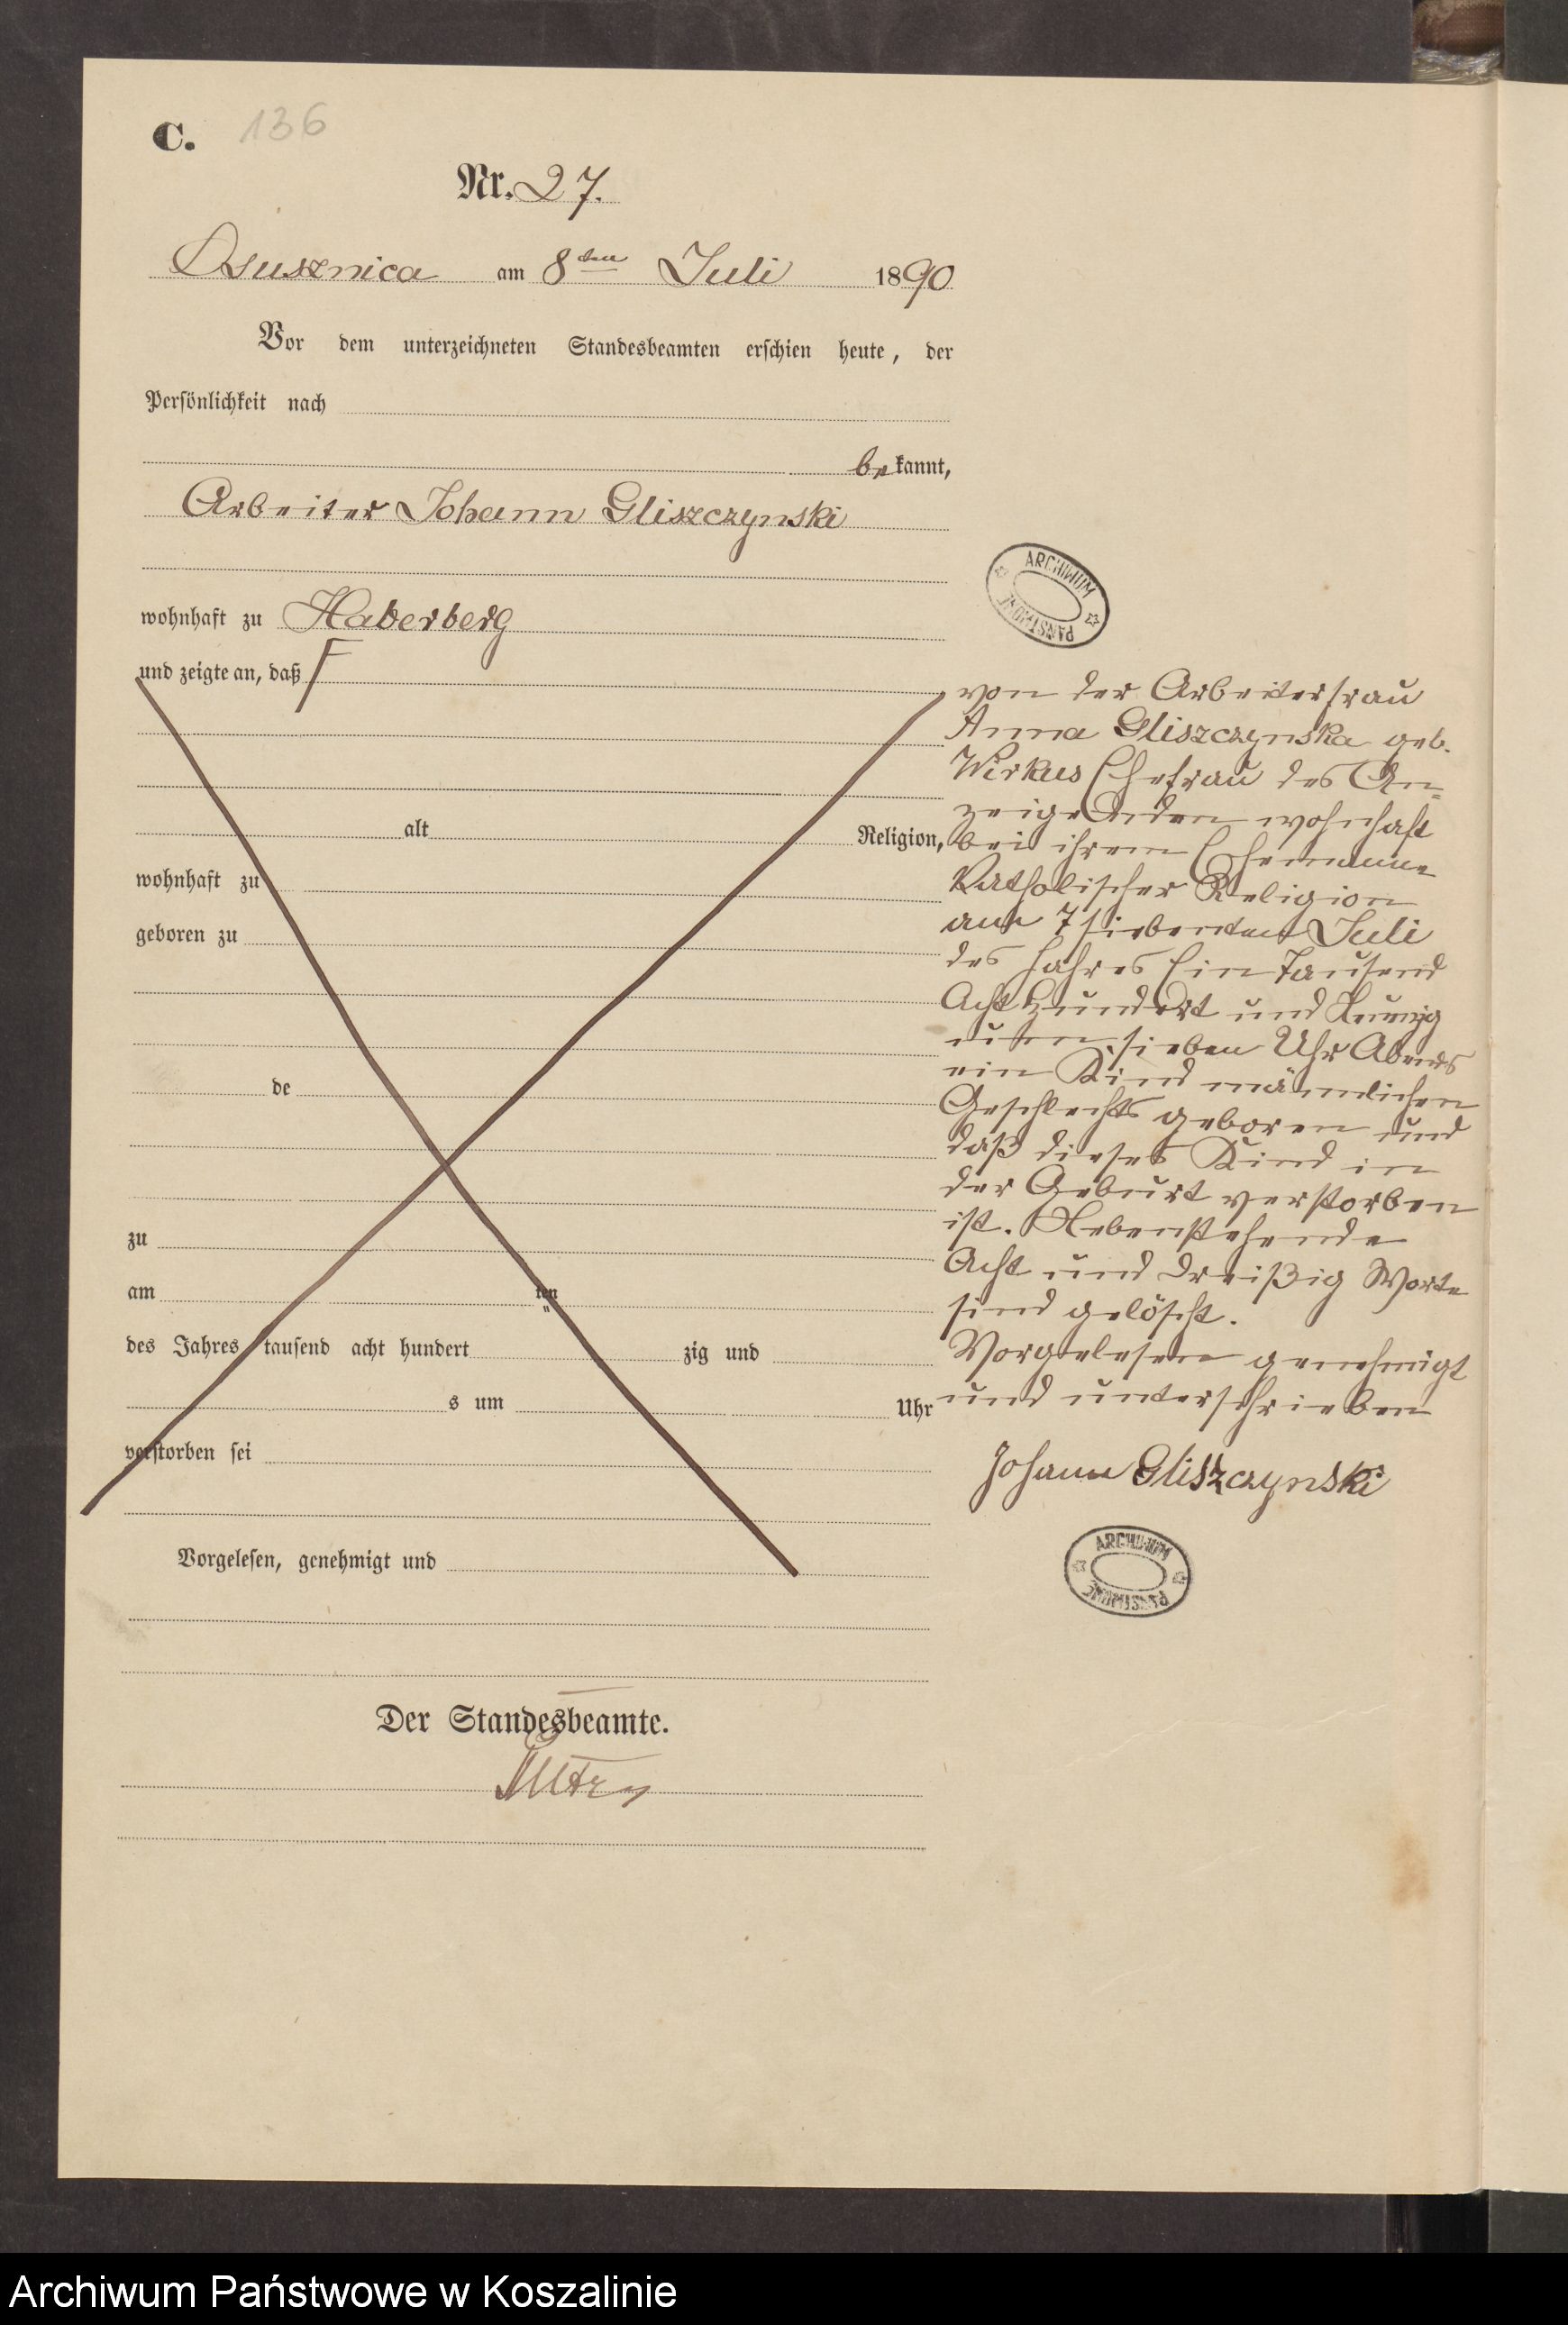 C. 136
Nr. 27.
Osusznica am 8ten Juli 1890
Vor dem unterzeichneten Standesbeamten erschien heute, der
Persönlichkeit nach
bekannt,
Arbeiter Johann Gliszczynski
wohnhaft zu Haberberg
und zeigte an, daß
alt Religion,
wohnhaft zu
geboren zu
de
zu
am ten
des Jahres tausend acht hundert zig und
s um Uhr
verstorben sei
Vorgelesen, genehmigt und
von der Arbeiterfrau
Anna Gliszczynska geb.
Wirkus Ehefrau des An-
zeigenden wohnhaft
bei ihrem Ehemanne
Katholischer Religion
am 7 siebenten Juli
des Jahres Ein Tausend
Acht Hundert und Neunzig
sieben Uhr Abends
ein Kind männlichen
Geschlechts geboren und
daß dieses Kind in
der Geburt verstorben
ist. Nebenstehende
Acht und dreißig Worte
sind gelöscht.
Vorgelesen genehmigt
und unterschrieben
Johann Gliszczynski
Der Standesbeamte.
ARCHIWUM PAŃSTWOWE
ARCHIWUM PAŃSTWOWE
Archiwum Państwowe w Koszalinie